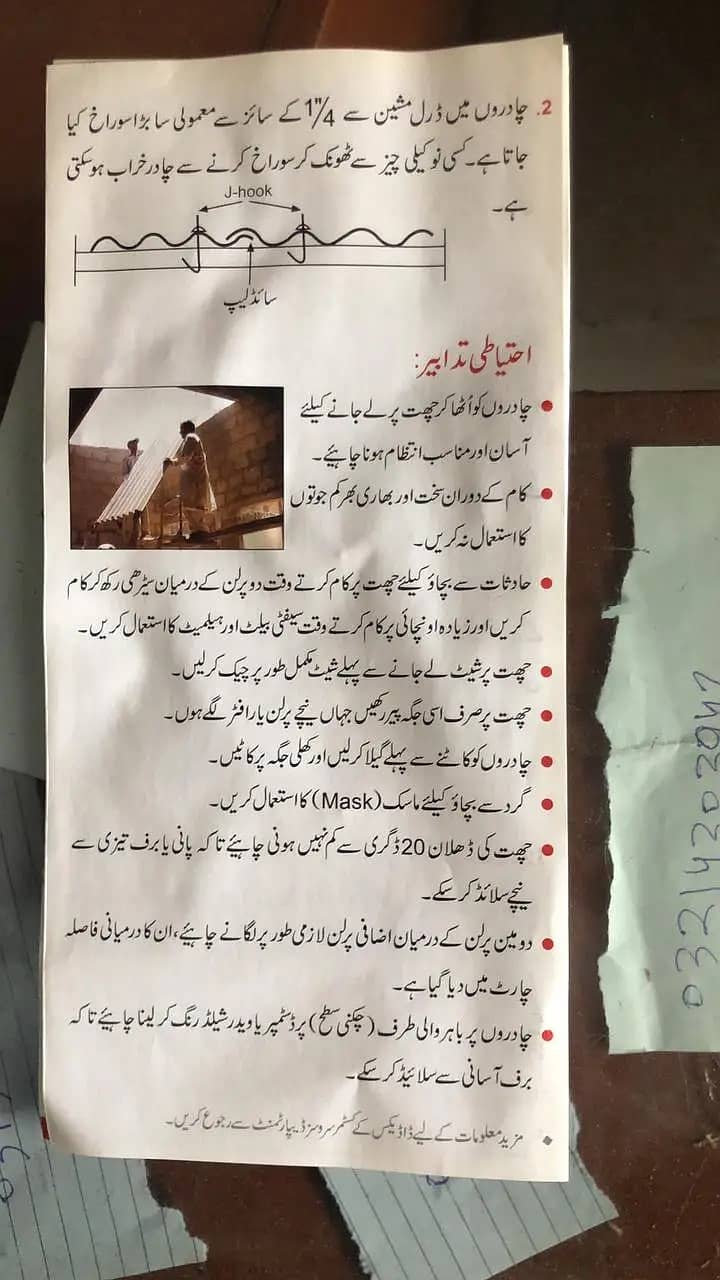 2. چادروں میں ڈرل مشین سے 1/4" کے سائز سے معمولی سا بڑا سوراخ کیا
جاتا ہے۔ کسی نوکیلی چیز سے ٹھونک کر سوراخ کرنے سے چادر خراب ہوسکتی
ہے۔
J-hook
سائڈ لیپ
احتیاطی تدابیر:
● چادروں کو اُٹھا کر چھت پر لے جانے کیلئے
آسان اور مناسب انتظام ہونا چاہیئے۔
● کام کے دوران سخت اور بھاری بھرکم جوتوں
کا استعمال نہ کریں۔
● حادثات سے بچاؤ کیلئے چھت پر کام کرتے وقت دو پرلن کے درمیان سیڑھی رکھ کر کام
کریں اور زیادہ اونچائی پر کام کرتے وقت سیفٹی بیلٹ اور ہیلمیٹ کا استعمال کریں۔
● چھت پر شیٹ لے جانے سے پہلے شیٹ مکمل طور پر چیک کرلیں۔
● چھت پر صرف اسی جگہ پیر رکھیں جہاں نیچے پرلن یا رافٹر لگے ہوں۔
● چادروں کو کاٹنے سے پہلے گیلا کرلیں اور کھلی جگہ پر کاٹیں۔
● گرد سے بچاؤ کیلئے ماسک (Mask) کا استعمال کریں۔
● چھت کی ڈھلان 20 ڈگری سے کم نہیں ہونی چاہیئے تاکہ پانی یا برف تیزی سے
نیچے سلائڈ کرسکے۔
● دو مین پرلن کے درمیان اضافی پرلن لازمی طور پر لگانے چاہیئے، ان کا درمیانی فاصلہ
چارٹ میں دیا گیا ہے۔
● چادروں پر باہر والی طرف (چکنی سطح) پر ڈسٹمپر یا ویدر شیلڈ رنگ کرلینا چاہیئے تاکہ
برف آسانی سے سلائیڈ کرسکے۔
◆ مزید معلومات کے لیے ڈاڈیکس کے کسٹمر سروسز ڈیپارٹمنٹ سے رجوع کریں۔